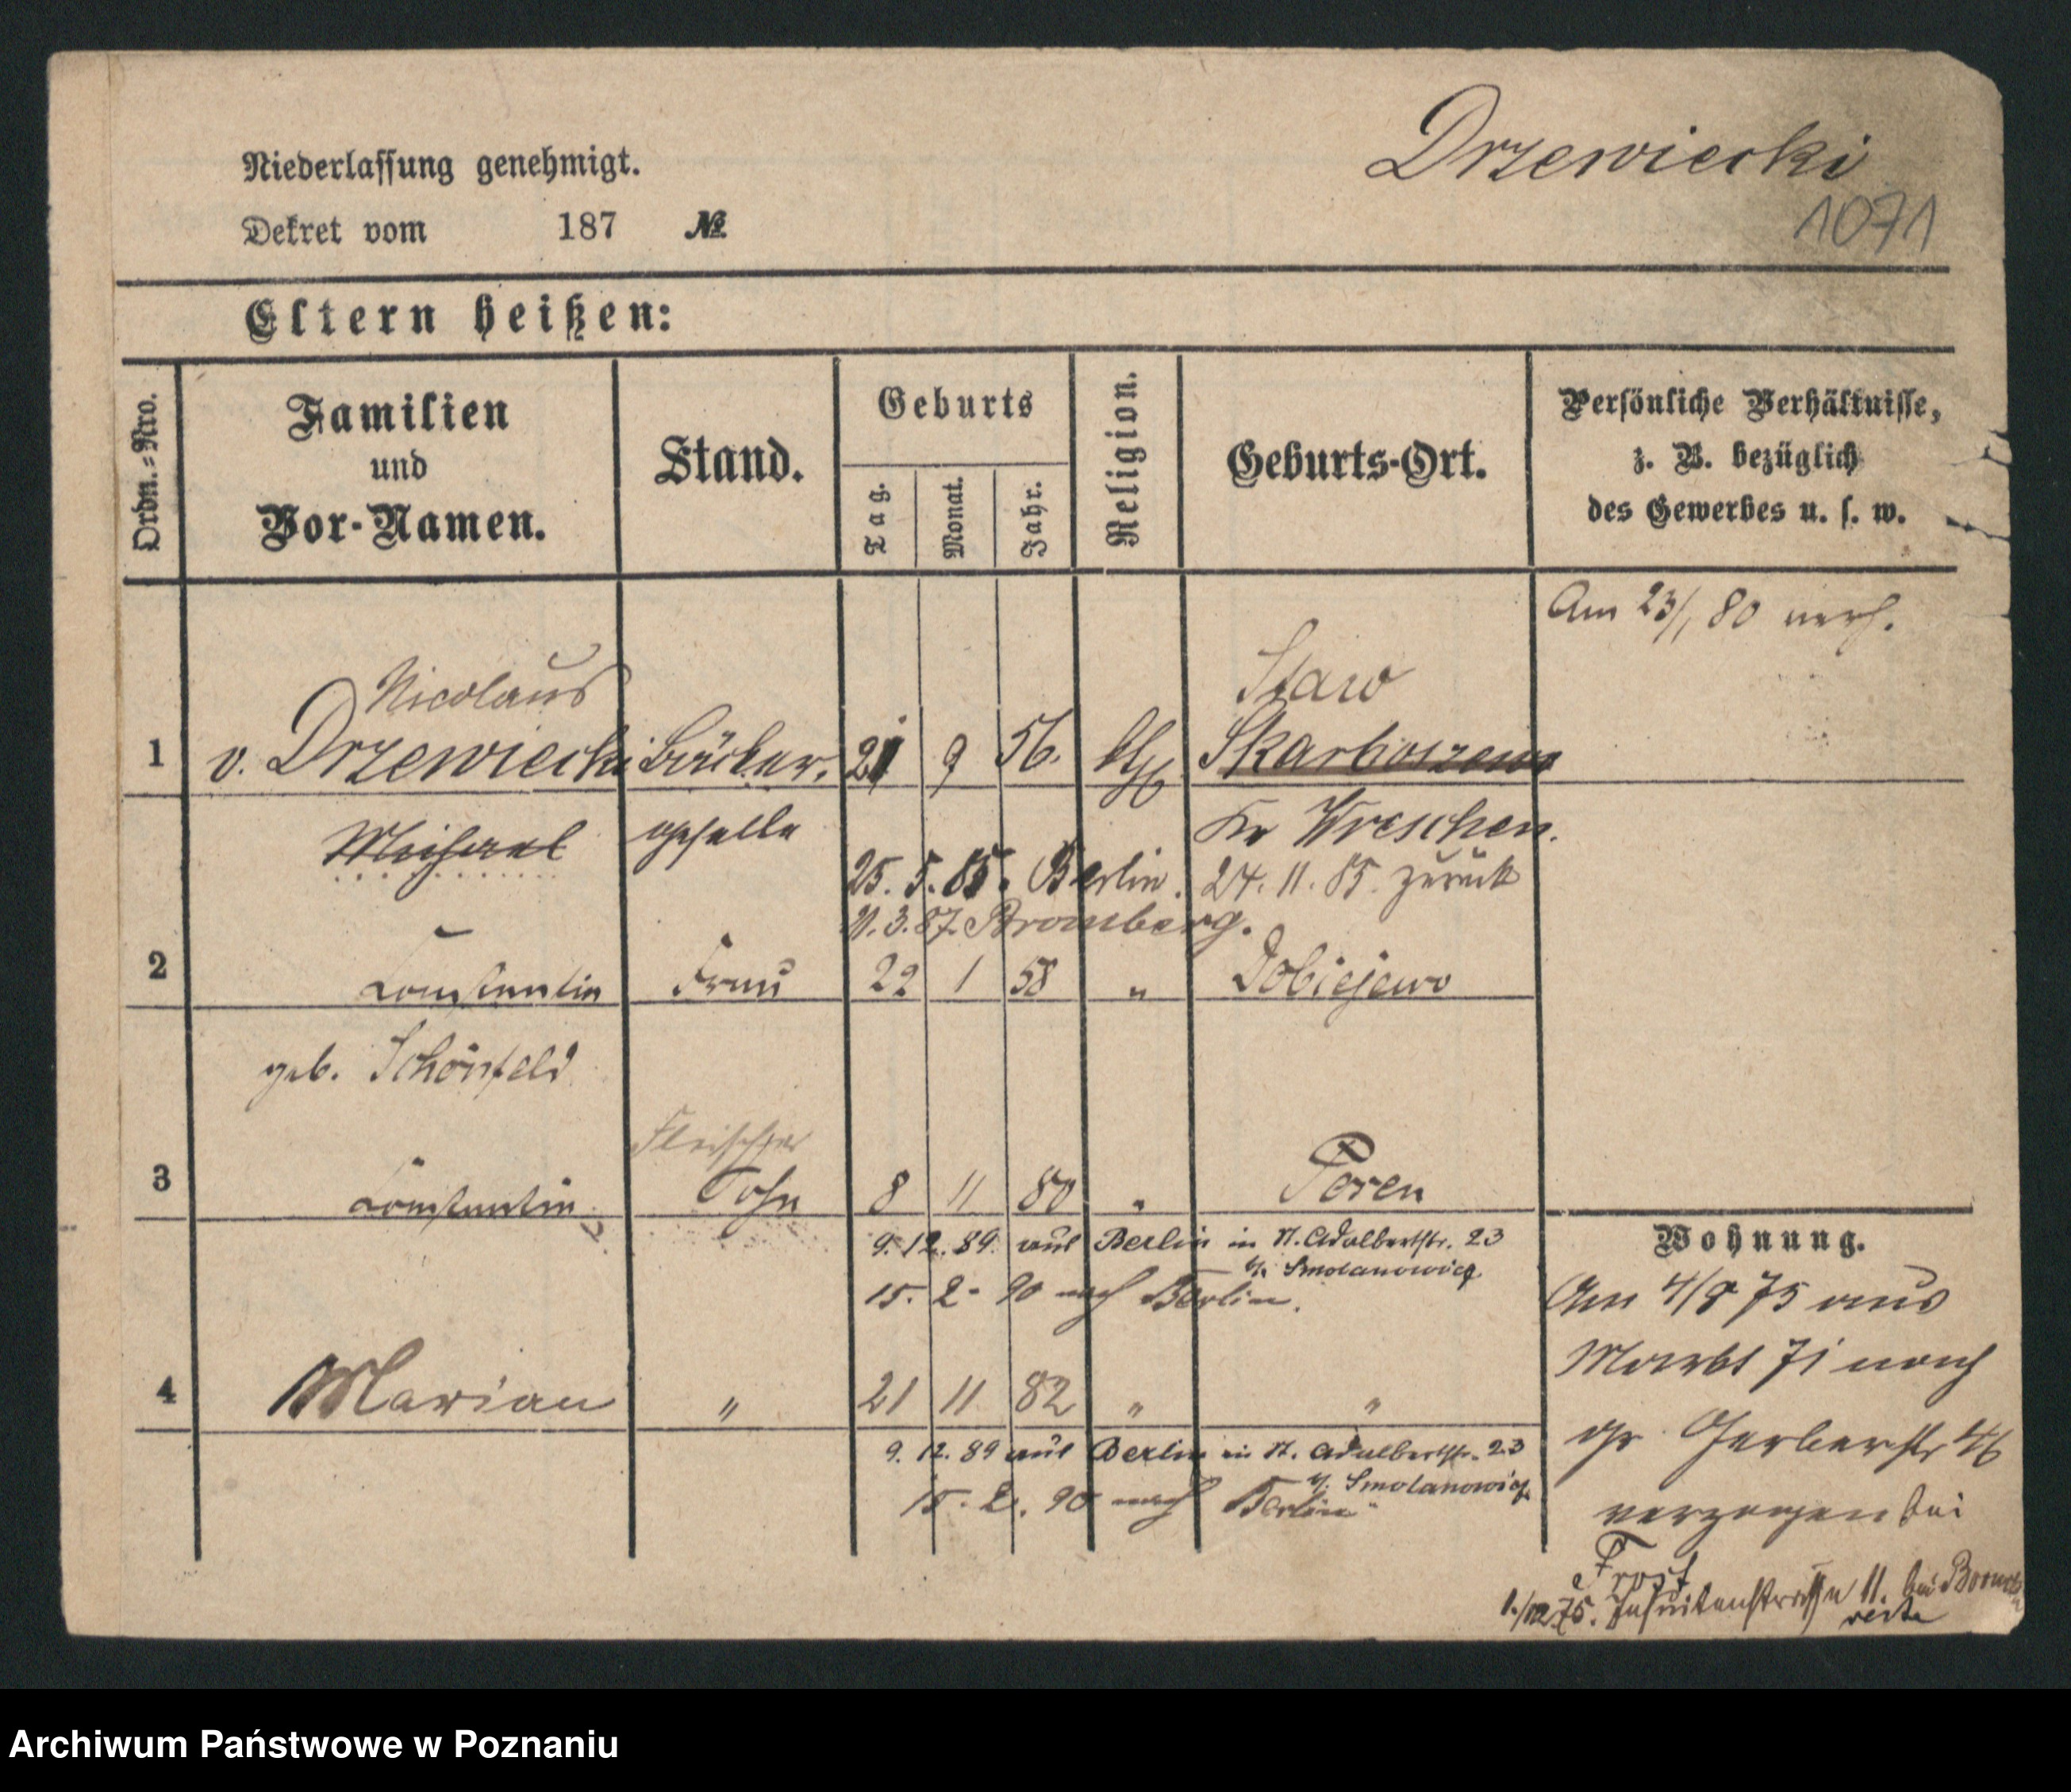 Drzewiecki
1071
Niederlassung genehmigt.
Dekret vom 187 №
Eltern heißen:
Ordn.-Nro.
Familien
und
Vor-Namen.
Stand.
Geburts
Tag.
Monat.
Jahr.
Religion.
Geburts-Ort.
Persönliche Verhältnisse,
z. B. bezüglich
des Gewerbes u. s. w.
Am 23/1 80 verh.
Nicolaus
Staw
1 v. Drzewiecki Bäcker. 21 9 56. kth Skarboszewo
Michael geselle Kr Wreschen.
25. 5. 85. Berlin. 24. 11. 85. zurück
11. 3. 87. Bromberg.
2 Constantia Frau 22 1 58 " Dobiejewo
geb. Schönfeld
Fleischer
3 Constantin Sohn 8 11 80 " Posen
9. 12. 89. aus Berlin in St. Adalbertstr. 23
b/. Smolanowicz
15. 2. 90 nach Berlin.
4 Marian " 21 11 82 " "
9. 12. 89 aus Berlin in St. Adalbertstr. 23
b/. Smolanowicz
15. 2. 90 nach Berlin
Wohnung.
Am 4/8 75 aus
Markt 71 nach
gr Gerberstr 46
verzogen bei
Frost
1./12 75. Jesuitenstraße 11. bei